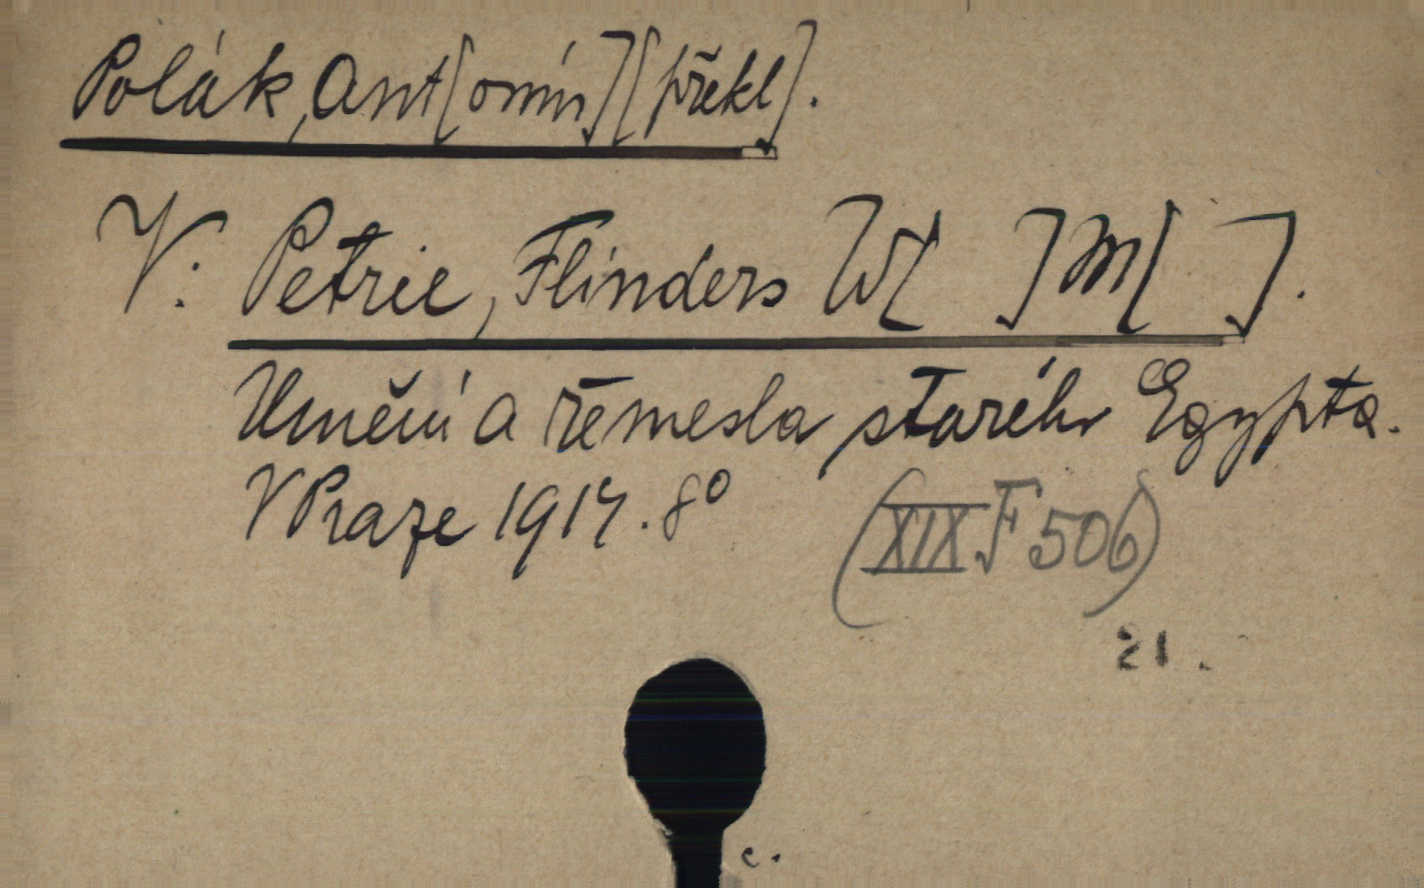 Polák, Ant[onín] [překl].
V: Petrie, Flinders W[ ] M[ ].
Umění a řemesla starého Egypta.
V Praze 1917. 8°
(XIX F 506)
21.
c.